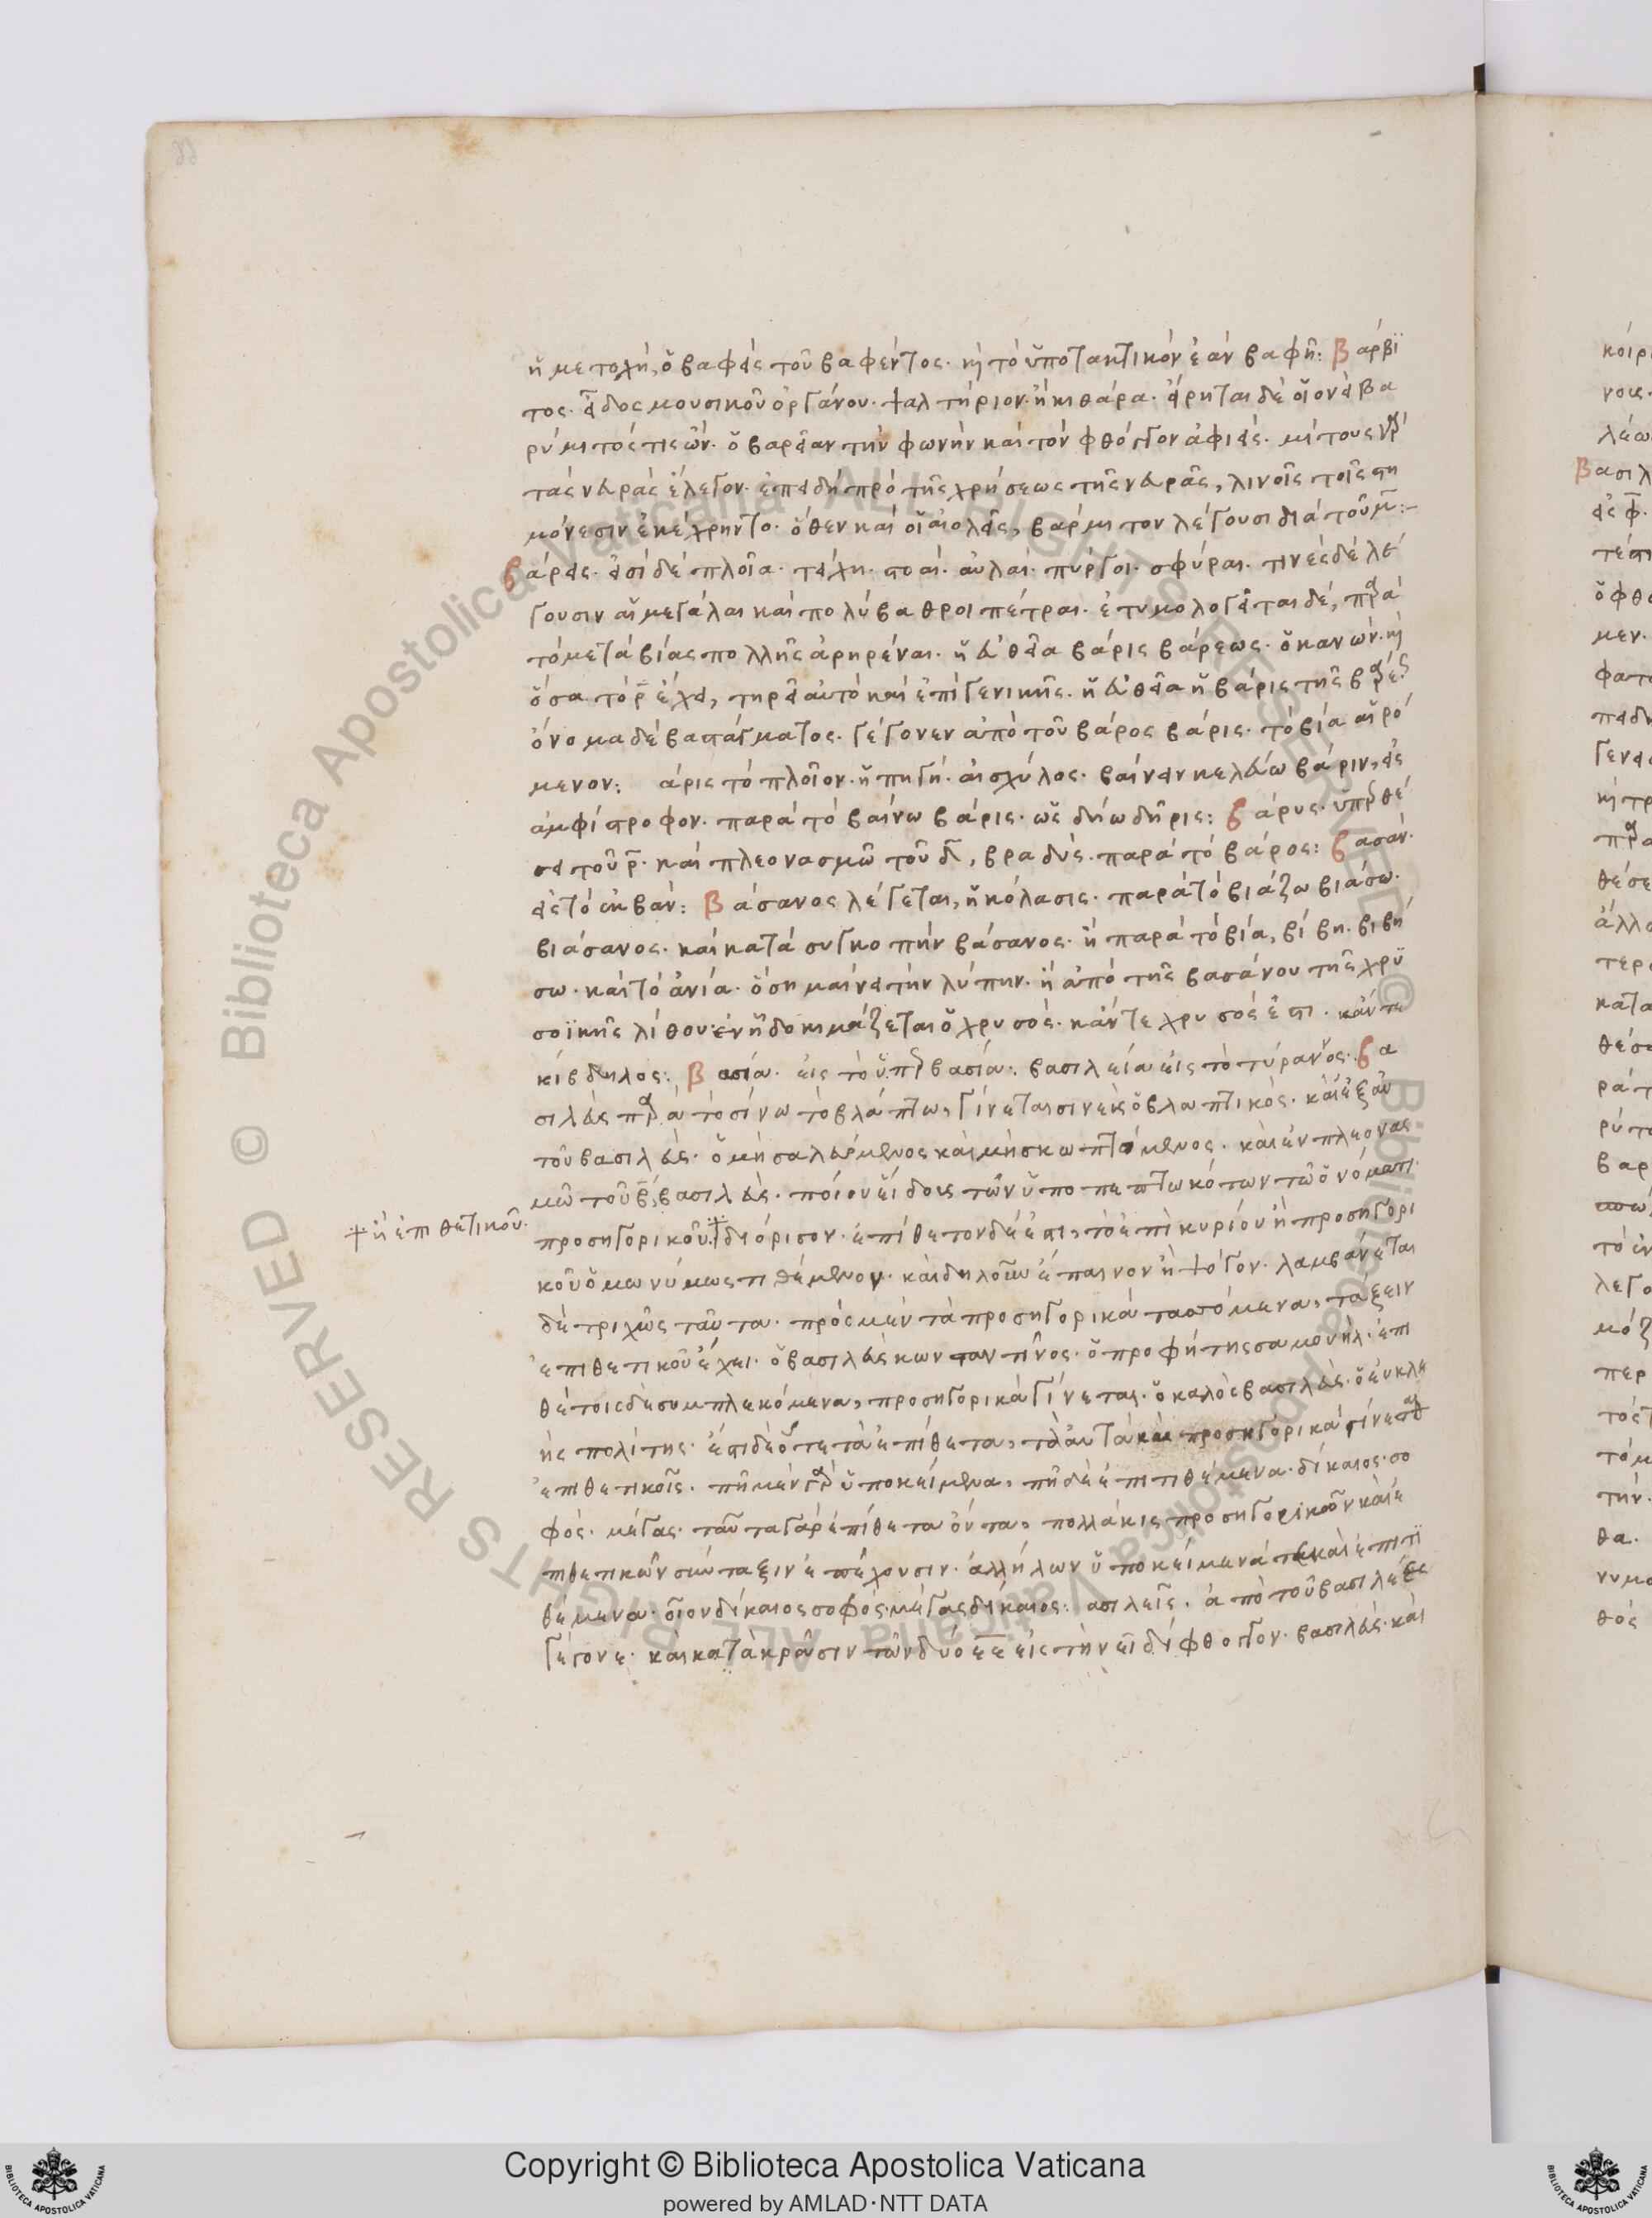 ἡ μετοχή, ὁ βαφείς τοῦ βαφέντος. καὶ τό ὑποτακτικόν ἐάν βαφῆ: Βάρβι
τος. εἶδος μουσικοῦ ὀργάνου. ψαλτήριον. ἢ κιθάρα. εἴρηται δέ οἱονεί βα
ρύμιτός τις ὤν. ὁ βαρεῖαν τήν φωνήν καί τόν φθόγγον ἀφιείς. μίτους γάρ
τάς νευράς ἔλεγον. ἐπειδή πρό τῆς χρήσεως τῆς νευρᾶς, λινοῖς τοῖς στη
μόνεσιν ἐκέχρηντο. ὅθεν καί οἱ αἰολεῖς, βάρμιτον λέγουσι διά τοῦ μ̅:-
βάρεις. εἰσί δέ πλοῖα. τείχη. στοαί. αὐλαί. πύργοι. σφύραι. τινές δέ λέ
γουσιν αἱ μεγάλαι καί πολύβαθροι πέτραι. ἐτυμολογεῖται δέ, παρά
τό μετά βίας πολλῆς ἀρηρέναι. ἡ εὐθεῖα βάρις βάρεως. ὁ κανών. καὶ
ὅσα τό ρ̅ ἔχει, τηρεῖ αὐτό καί ἐπί γενικῆς. ἡ εὐθεῖα ἡ βάρις τῆς βάρεως
ὄνομα δέ βαστάγματος. γέγονεν ἀπό τοῦ βάρος βάρις. τό βία αἰρό
μενον: άρις τό πλοῖον. ἡ πηγή. αἰσχύλος. βαίνειν κελεύω βάριν, εἰς
ἀμφίστροφον. παρά τό βαίνω βάρις. ὡς δηίω δῆρις: βάρυς. ὑπερθέ
σει τοῦ ρ̅. καί πλεονασμῶ τοῦ δ̅, βραδύς. παρά τό βάρος: βασάν.
εἰς τό ἐκβάν: Βάσανος λέγεται, ἡ κόλασις. παρά τό βιάζω βιάσω.
βιάσανος. καί κατά συγκοπήν βάσανος. ἢ παρά τό βία, βίβη. βιβή
σω. καί τό ἀνία. ὃ σημαίνει τήν λύπην. ἢ ἀπό τῆς βασάνου τῆς χρυ
σοϊκῆς λίθου. ἐν ἧ δοκιμάζεται ὁ χρυσός. κάν τε χρυσός ἐστι. κἄν τε
κίβδηλος: Βασία. εἰς τό ὑπερβασία: βασιλεία εἰς τὸ τύραννος: βα
σιλεύς παρά τὸ σίνω τὸ βλάπτω, γίνεται σινεύς ὁ βλαπτικός. καὶ ἐξ αὐ
τοῦ βασιλεύς. ὁ μὴ σαλευόμενος καὶ μὴ σκωπτόμενος. καὶ ἐν πλεονας
μῶ τοῦ β̅, βασιλεύς. ποίου εἴδους τῶν ὑποπεπτωκότων τῶ ὀνόματι.
προσηγορικοῦ. διόρισον. ἐπίθετον δέ ἐστι, τὸ ἐπὶ κυρίου ἢ προσηγορι
κοῦ ὁμωνύμως τιθέμενον. καὶ δηλοῦν ἔπαινον ἢ ψόγον. λαμβάνεται
δὲ τριχῶς ταῦτα. πρὸς μέν τὰ προσηγορικά τασσόμενα, τάξειν
ἐπιθετικοῦ ἔχει. ὁ βασιλεύς κωνσταντῖνος. ὁ προφήτης σαμουήλ. ἐπι
θέτοις δὲ συμπλεκόμενα, προσηγορικὰ γίνεται. ὁ καλός βασιλεύς. ὁ εὐκλε
ής πολίτης. ἐπιδὲ ὅτε τὰ ἐπίθετα, τὰ αὐτά καὶ προσηγορικά γίνεται
ἐπιθετικοῖς. πῆ μέν γάρ ὑποκείμενα, πῆ δέ ἐπιτιθέμενα. δίκαιος. σο
φός. μέγας. ταῦτα γάρ ἐπίθετα ὄντα, πολλάκις προσηγορικῶν καὶ ἐ
πιθετικῶν σύνταξιν ἐπέχουσιν. ἀλλήλων ὑποκείμενά τε καὶ ἐπιτι
θέμενα. οἷον δίκαιος σοφός. μέγας δίκαιος: ασιλεῖς. ἀπὸ τοῦ βασιλέες
γέγονε. καὶ κατὰ κρᾶσιν τῶν δύο ε̅ε̅ εἰς τὴν ει δίφθογγον. βασιλεῖς. καὶ
ἢ ἐπιθετικοῦ.
Copyright © Biblioteca Apostolica Vaticana
powered by AMLAD·NTT DATA